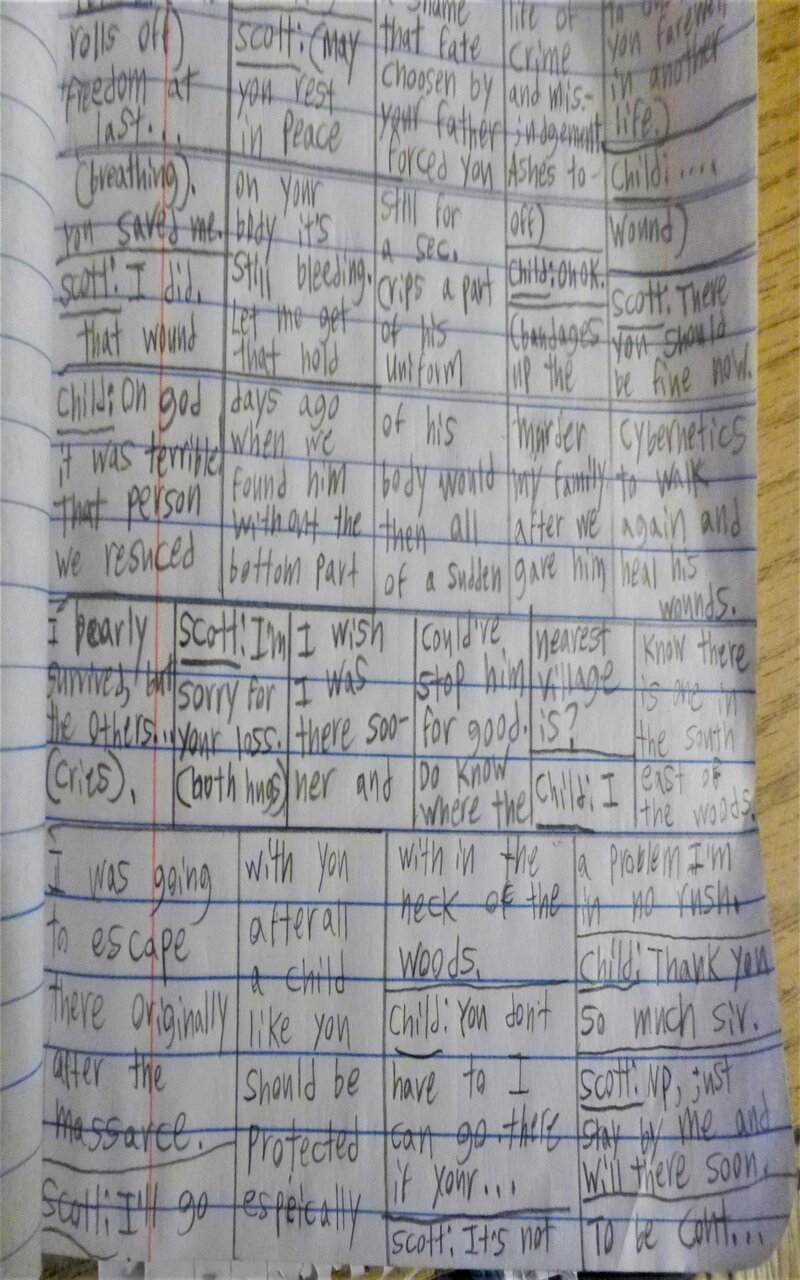 rolls off)
freedom at
last...
Scott: (May
you rest
in peace
a shame
that fate
choosen by
your father
forced you
life of
crime
and mis-
judgement.
Ashes to-
you farewell
in another
life.)
Child: ....
(breathing).
you saved me.
Scott: I did.
that wound
on your
body it's
still bleeding.
Let me get
that hold
still for
a sec.
Crips a part
of his
uniform
off)
Child: Oh OK.
(bandages
up the
wound)
Scott: There
you should
be fine now.
Child: Oh god
it was terrible
That person
we resuced
days ago
when we
found him
without the
bottom part
of his
body would
then all
of a sudden
murder
my family
after we
gave him
cybernetics
to walk
again and
heal his
wounds.
I pearly
survived, but
the others...
(cries).
Scott: I'm
sorry for
your loss.
(both hugs)
I wish
I was
there soo-
ner and
could've
stop him
for good.
Do know
where the
nearest
village
is?
Child: I
know there
is one in
the south
east of
the woods.
I was going
to escape
there originally
after the
massarce.
Scott: I'll go
with you
afterall
a child
like you
should be
protected
espeically
with in the
neck of the
woods.
Child: You don't
have to I
can go there
if your...
Scott: It's not
a problem I'm
in no rush.
Child: Thank you
so much sir.
Scott: NP, just
stay by me and
will there soon.
To be cont...